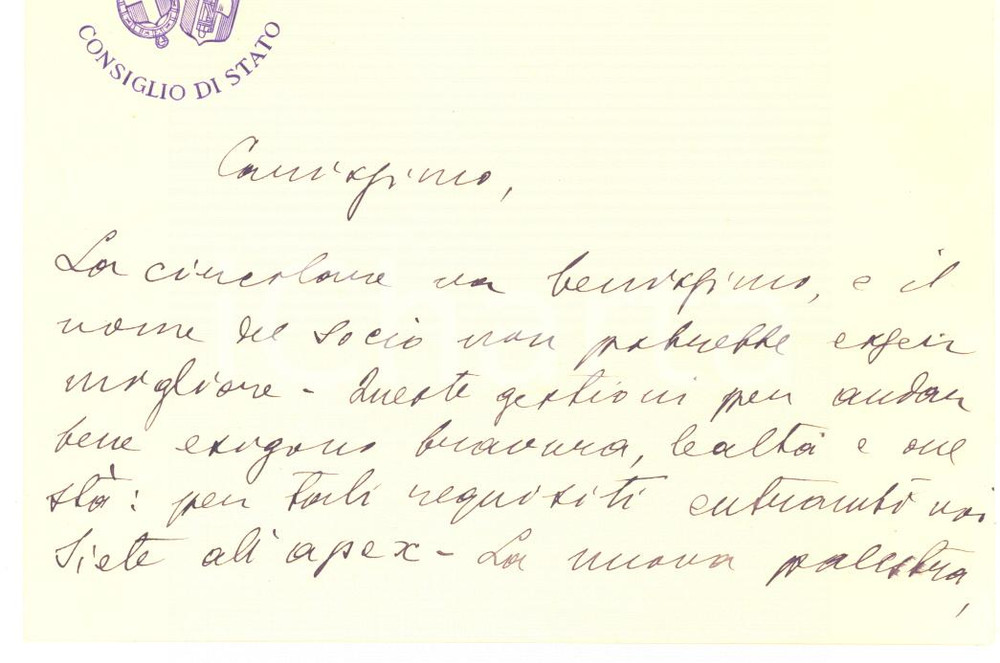 CONSIGLIO DI STATO
Carissimo,
La circolare va benissimo, e il
nome del socio non potrebbe esser
migliore - Queste gestioni per andar
bene esigono bravura, lealtà e one
stà: per tali requisiti entrambi voi
siete all'apex - La nuova palestra,